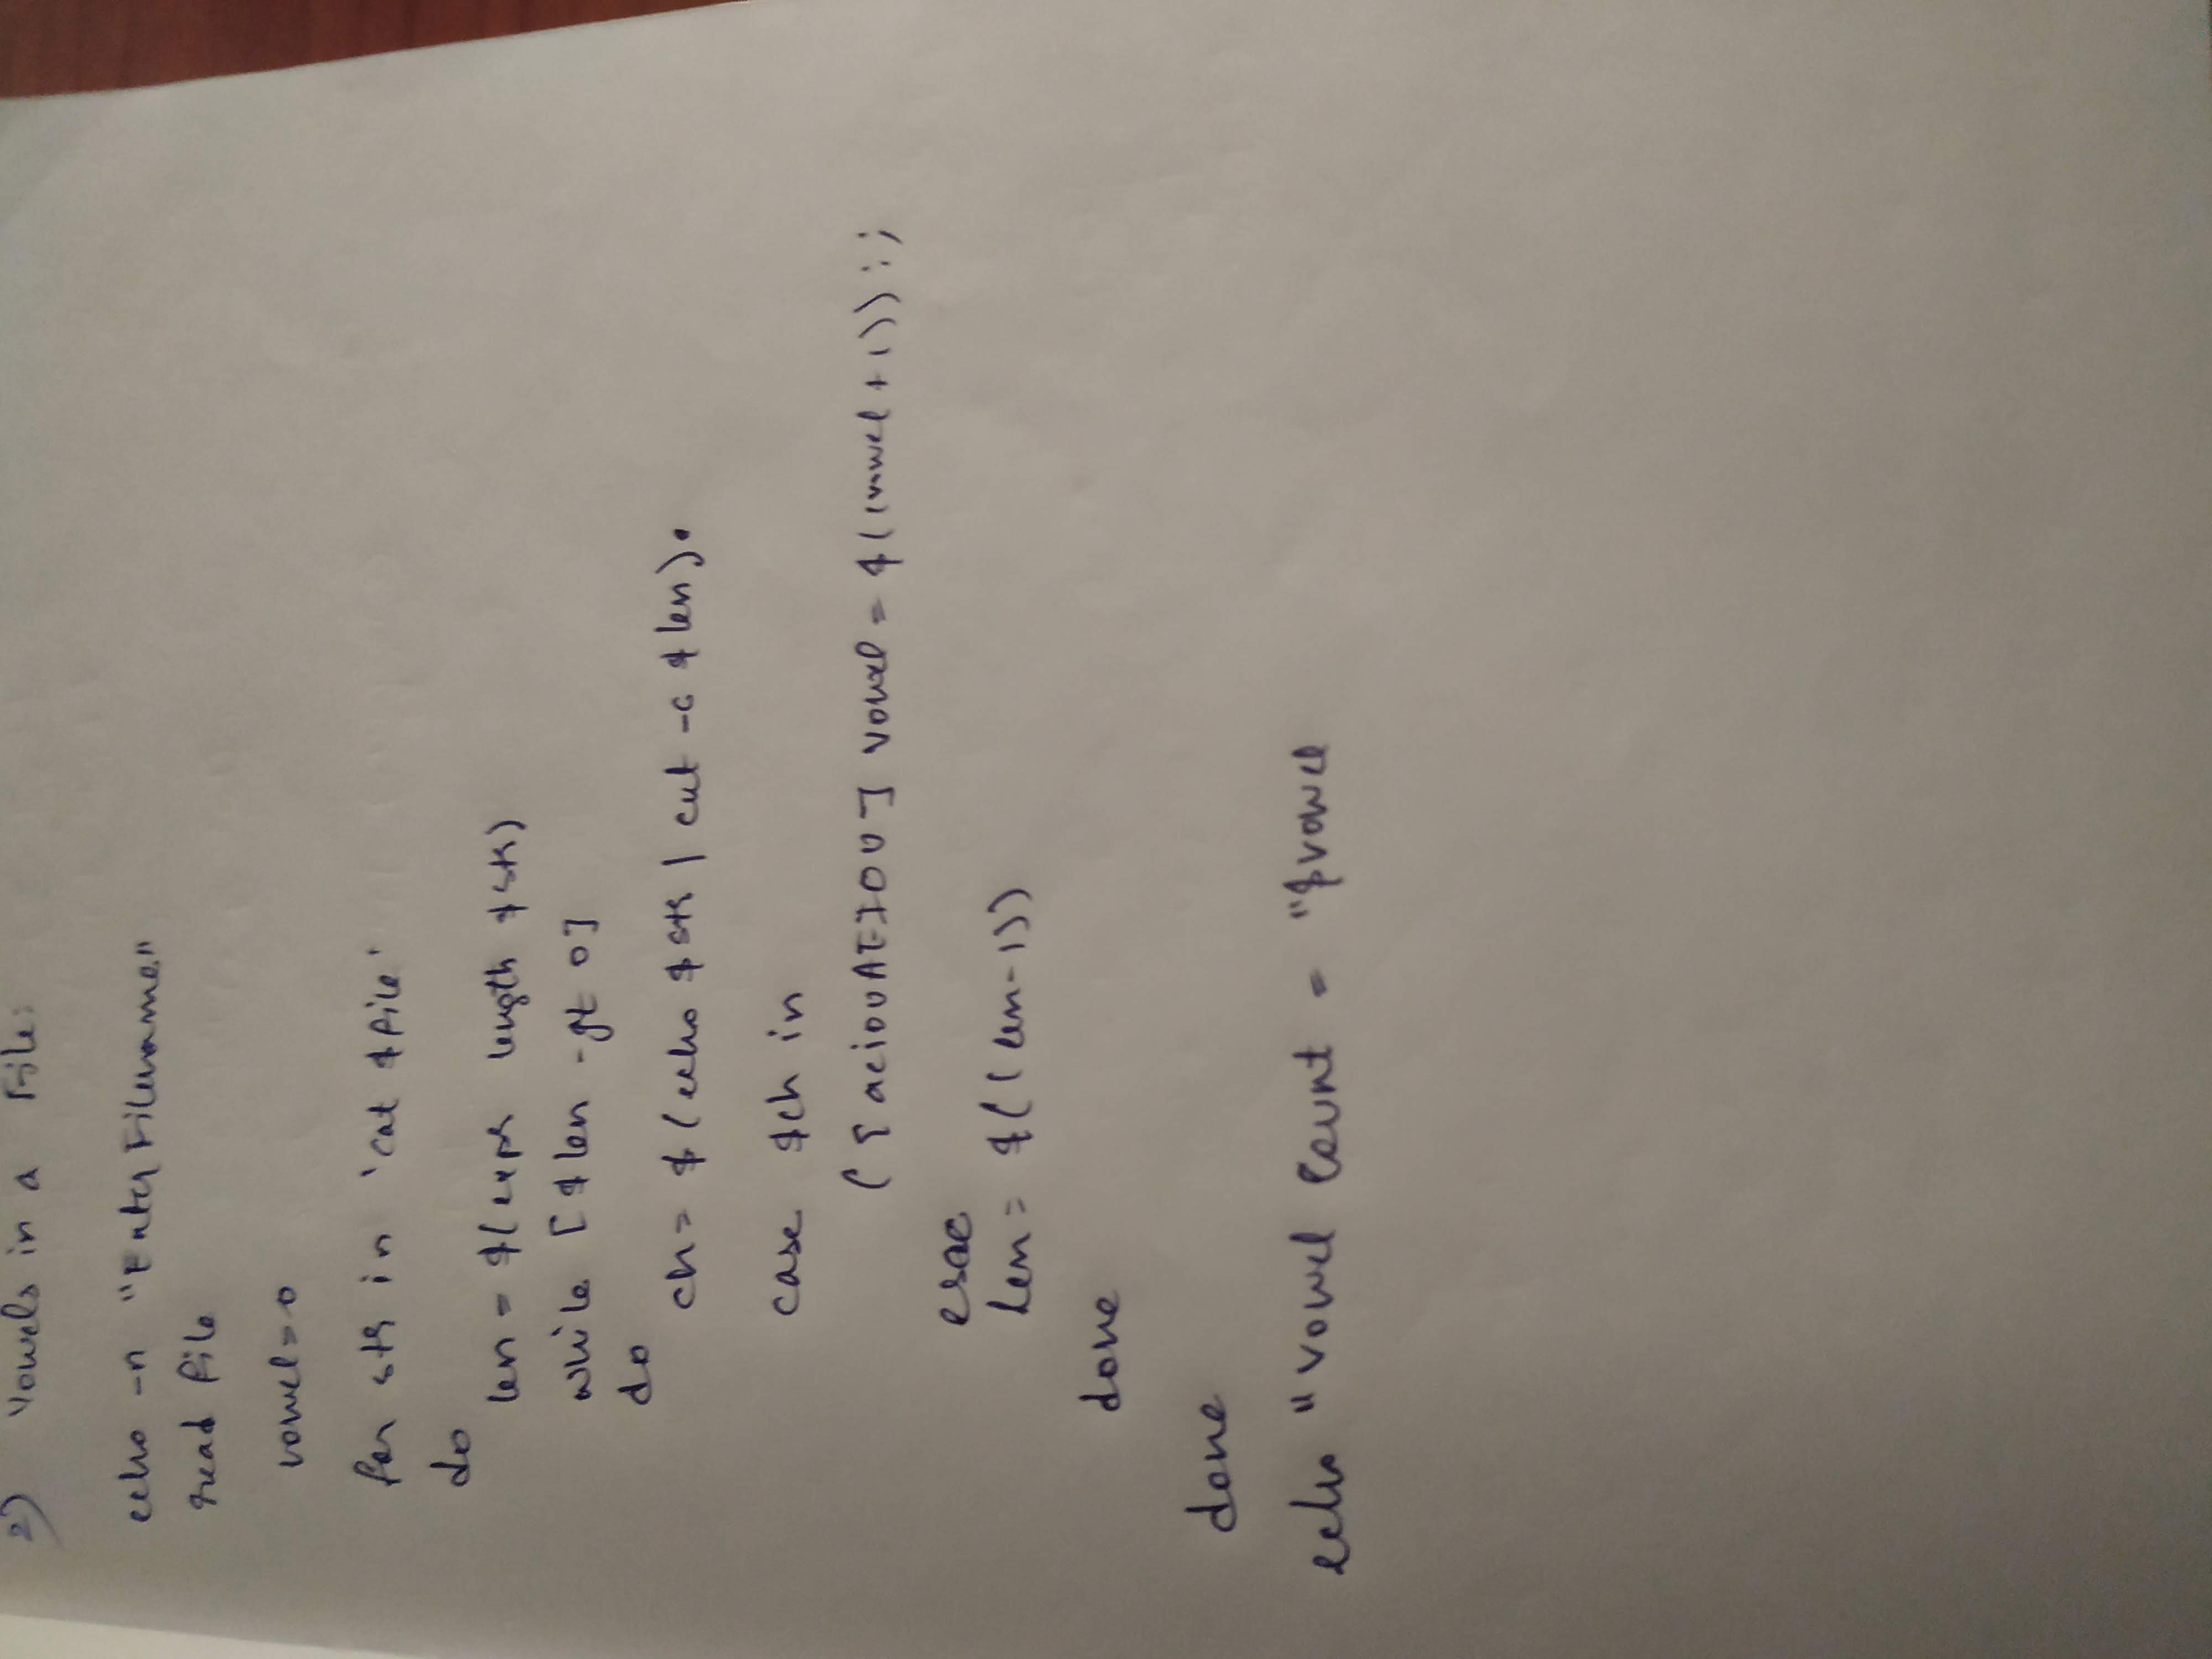 2) Vowels in a File:
echo -n "Enter Filename"
read file
vowel=0
for str in 'cat $file'
do
len = $(expr length $str)
while [$len -gt 0]
do
ch= $(echo $str | cut -c $len).
case $ch in
([aeiouAEIOU] vowel = $((vowel+1));;
esac
len= $((len-1))
done
done
echo "Vowel Count = "$vowel